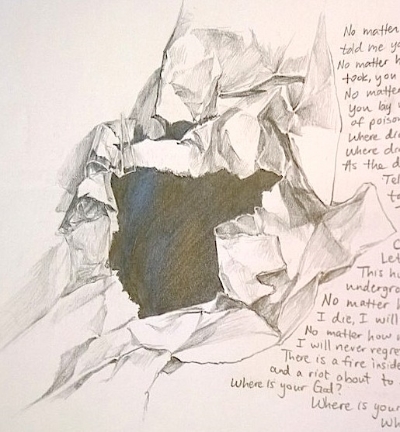 No matter
told me yo
No matter h
took, you
No matter
you by
of poison
Where di
where dr
As the d
Tel
to
C
Let
This hu
undergro
No matter h
I die, I will
No matter how
I will never regre
There is a fire inside
and a riot about to
Where is your God?
Where is your
Wh